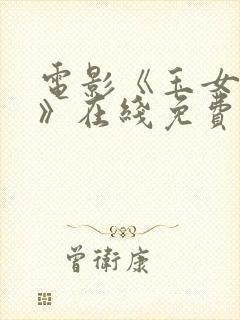 電影《玉女
》在綫免費
曾衛康